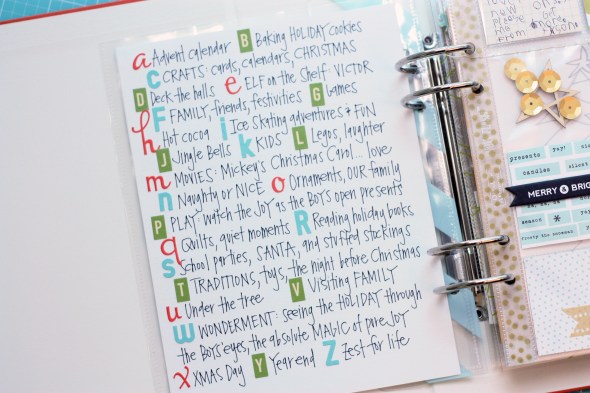 a Advent calendar B Baking HOLIDAY cookies
C CRAFTS: cards, calendars, CHRISTMAS
D Deck the halls e ELF on the Shelf: VICTOR
F FAMILY, friends, festivities G Games
h Hot cocoa i Ice Skating adventures & FUN
J Jingle Bells k KIDS L Legos, laughter
m MOVIES: Mickey's Christmas Carol... love
n Naughty or NICE o Ornaments, OUR family
P PLAY: watch the JOY as the BOYS open presents
q Quilts, quiet moments R Reading holiday books
s School parties, SANTA, and stuffed stockings
T TRADITIONS, toys, the night before Christmas
u Under the tree V Visiting FAMILY
w WONDERMENT: seeing the HOLIDAY through
the BOYS' eyes, the absolute MAGIC of pure JOY
x XMAS Day Y Year end Z Zest for life
now
please
me
from
presents
yay!
candles
silent
MERRY & BRIG
season
*
frosty the snowman